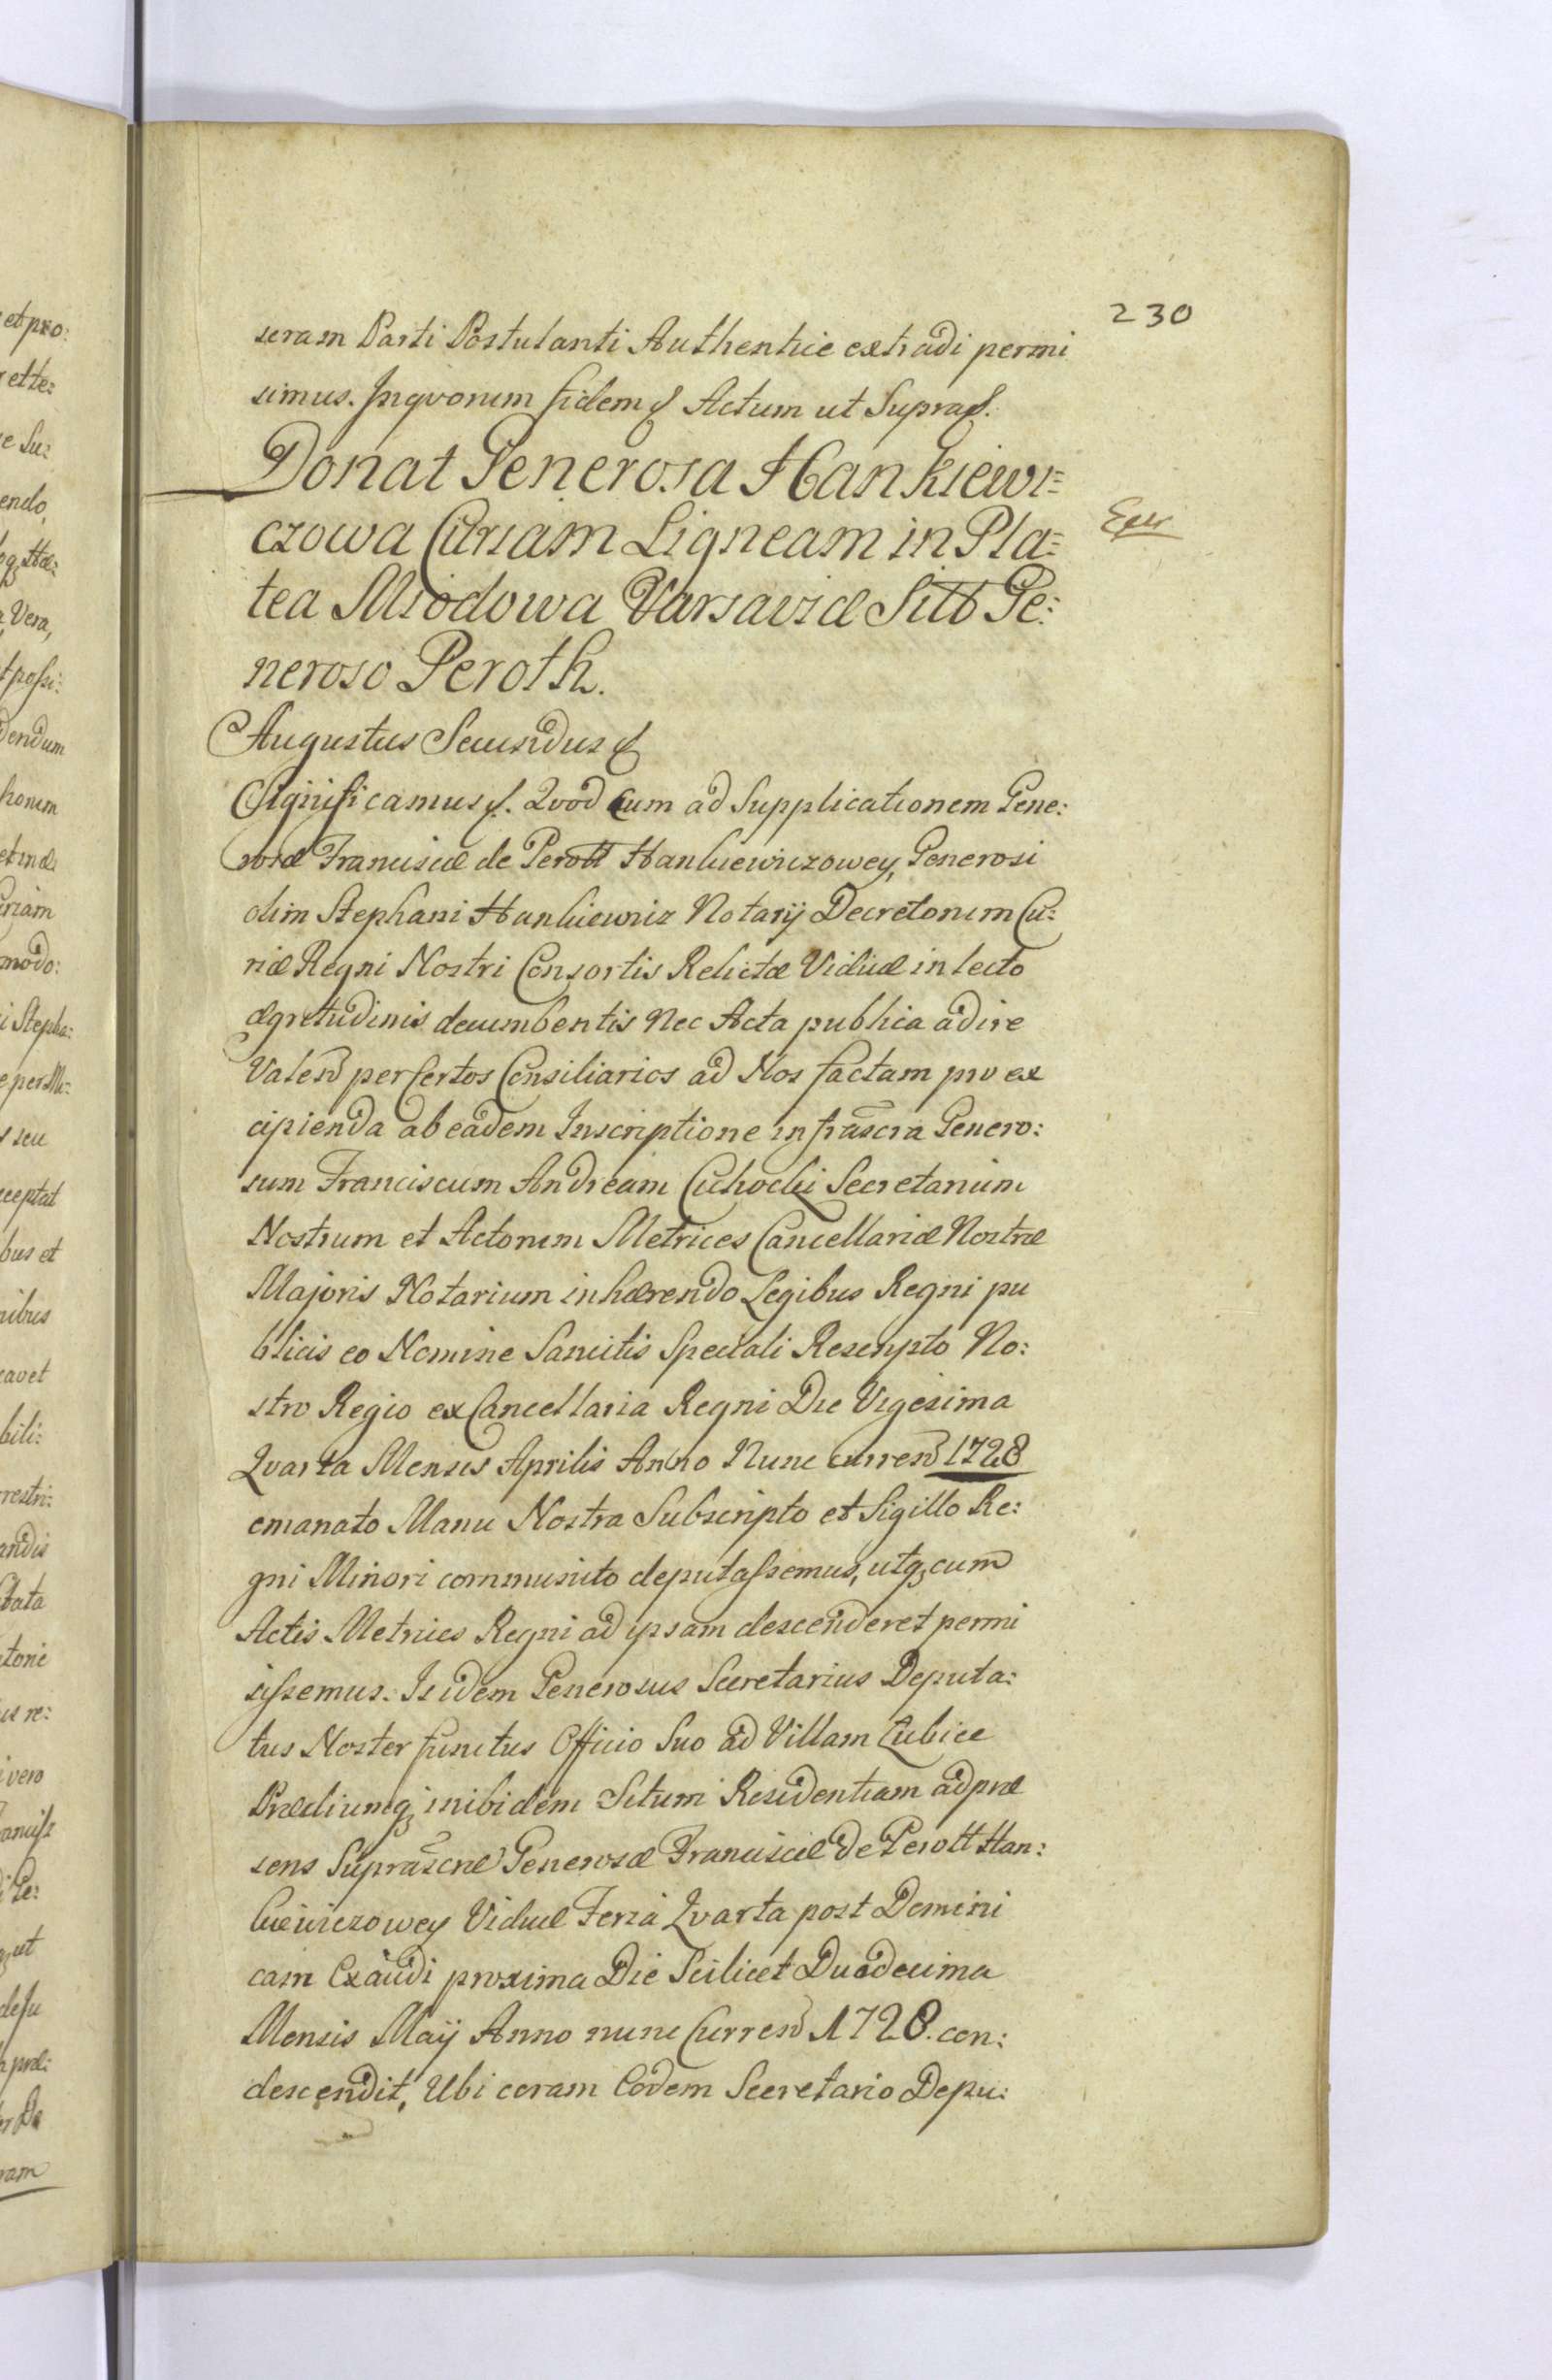 230
seram Parti Postulanti Authentice extradi permi
simus. Inqvorum fidem &. Actum ut Supra &.
Donat Generosa Hankiewi=
czowa Curiam Ligneam in Pla=
tea Miodowa Varsaviæ Sittã Ge:
neroso Peroth.
Augustus Secundus &
Significamus &. Qvod cum ad Supplicationem Gene:
rosæ Franciscæ de Perott Hankiewiczowey, Generosi
olim Stephani Hankiewicz Notarij Decretorum Cu:
riæ Regni Nostri Consortis Relictæ Viduæ in lecto
ægritudinis decumbentis Nec Acta publica adire
Valen per Certos Consiliarios ad Nos factam pro ex
cipienda ab eadem Inscriptione infrascra Genero:
sum Franciscum Andream Cichocki Secretarium
Nostrum et Actorum Metrices Cancellariæ Nostræ
Majoris Notarium inhærendo Legibus Regni pu
blicis eo Nomine Sancitis Speciali Rescripto No:
stro Regio ex Cancellaria Regni Die Vigesima
Qvarta Mensis Aprilis Anno Nunc curren 1728
emanato Manu Nostra Subscripto et Sigillo Re:
gni Minori communito deputassemus, utq cum
Actis Metrices Regni ad ipsam descenderet permi
sissemus. Is idem Generosus Secretarius Deputa:
tus Noster functus Officio Suo ad Villam Lubice
Prædiumq inibidem Situm Residentiam ad præ
sens Suprascræ Generosæ Franciscæ de Perott Han:
kiewiczowey Viduæ Feria Qvarta post Domini
cam Exaudi proxima Die Scilicet Duodecima
Mensis Maij Anno nunc Curren 1728. con:
descendit, Ubi coram Eodem Secretario Depu:
et pro:
ette:
e Su:
endo,
Vera,
t possi:
dendum
horum
et in
uriam
modo:
i Stepha:
e per Mi:
seu
cceptat
bus et
nibus
cavet
bili:
restri:
andis
bata
tione
us re:
i vero
Ge:
ut
de Ju
præ:
ram